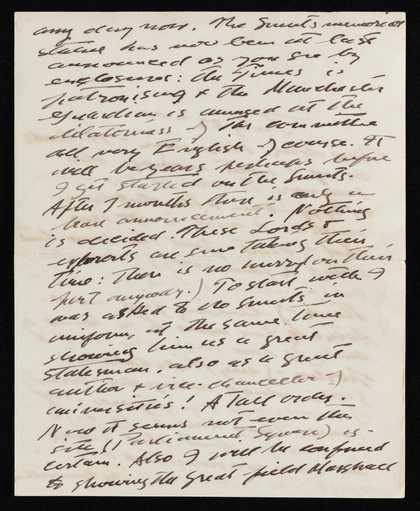 any day now. The Smuts memorial
statue has now been at last
announced as you see by
enclosure: the Times is
patronising & the Manchester
Guardian is amused at the
dilatoriness of the committee
all very English of course. It
will be years perhaps before
I get started on the Smuts.
After 7 months there is only a
bare announcement. Nothing
is decided. These Lords &
are sure taking their
time: There is no worry on their
part anyway.) To start with I
was asked to do Smuts in
uniform, at the same time
showing him as a great
statesman, also as a great
author & vice-chancellor of
universities! A tall order.
Now it seems not even the
site (Parliament Square) is
certain. Also I will be confined
to showing the great field Marshall